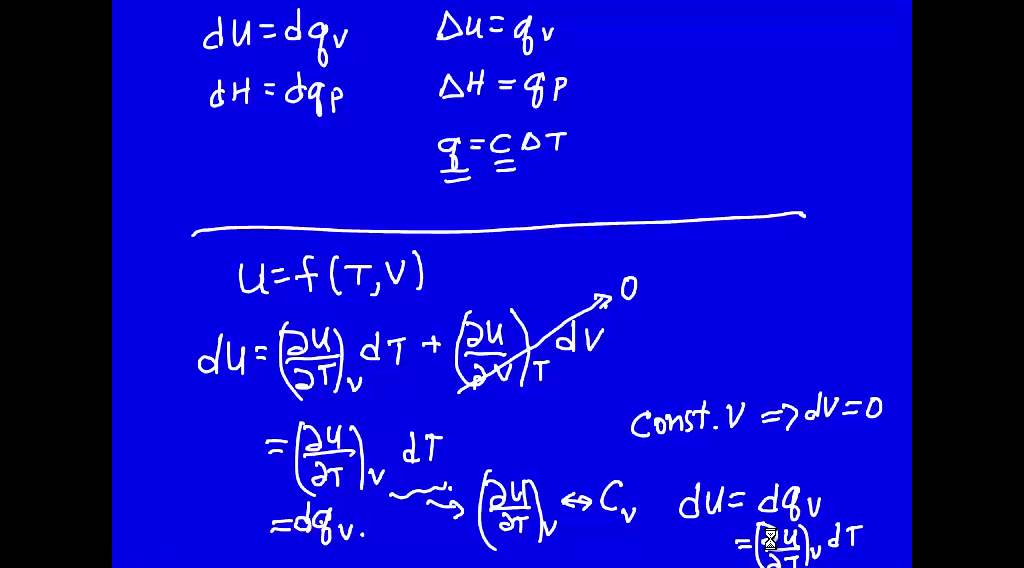 dU = dq_v    ΔU = q_v
dH = dq_p    ΔH = q_p
q = C ΔT
U = f(T, V)
dU = (∂U/∂T)_V dT + (∂U/∂V)_T dV → 0
Const. V => dV = 0
= (∂U/∂T)_V dT
= dq_v. → (∂U/∂T)_V ↔ C_v    dU = dq_v
= (∂U/∂T)_V dT